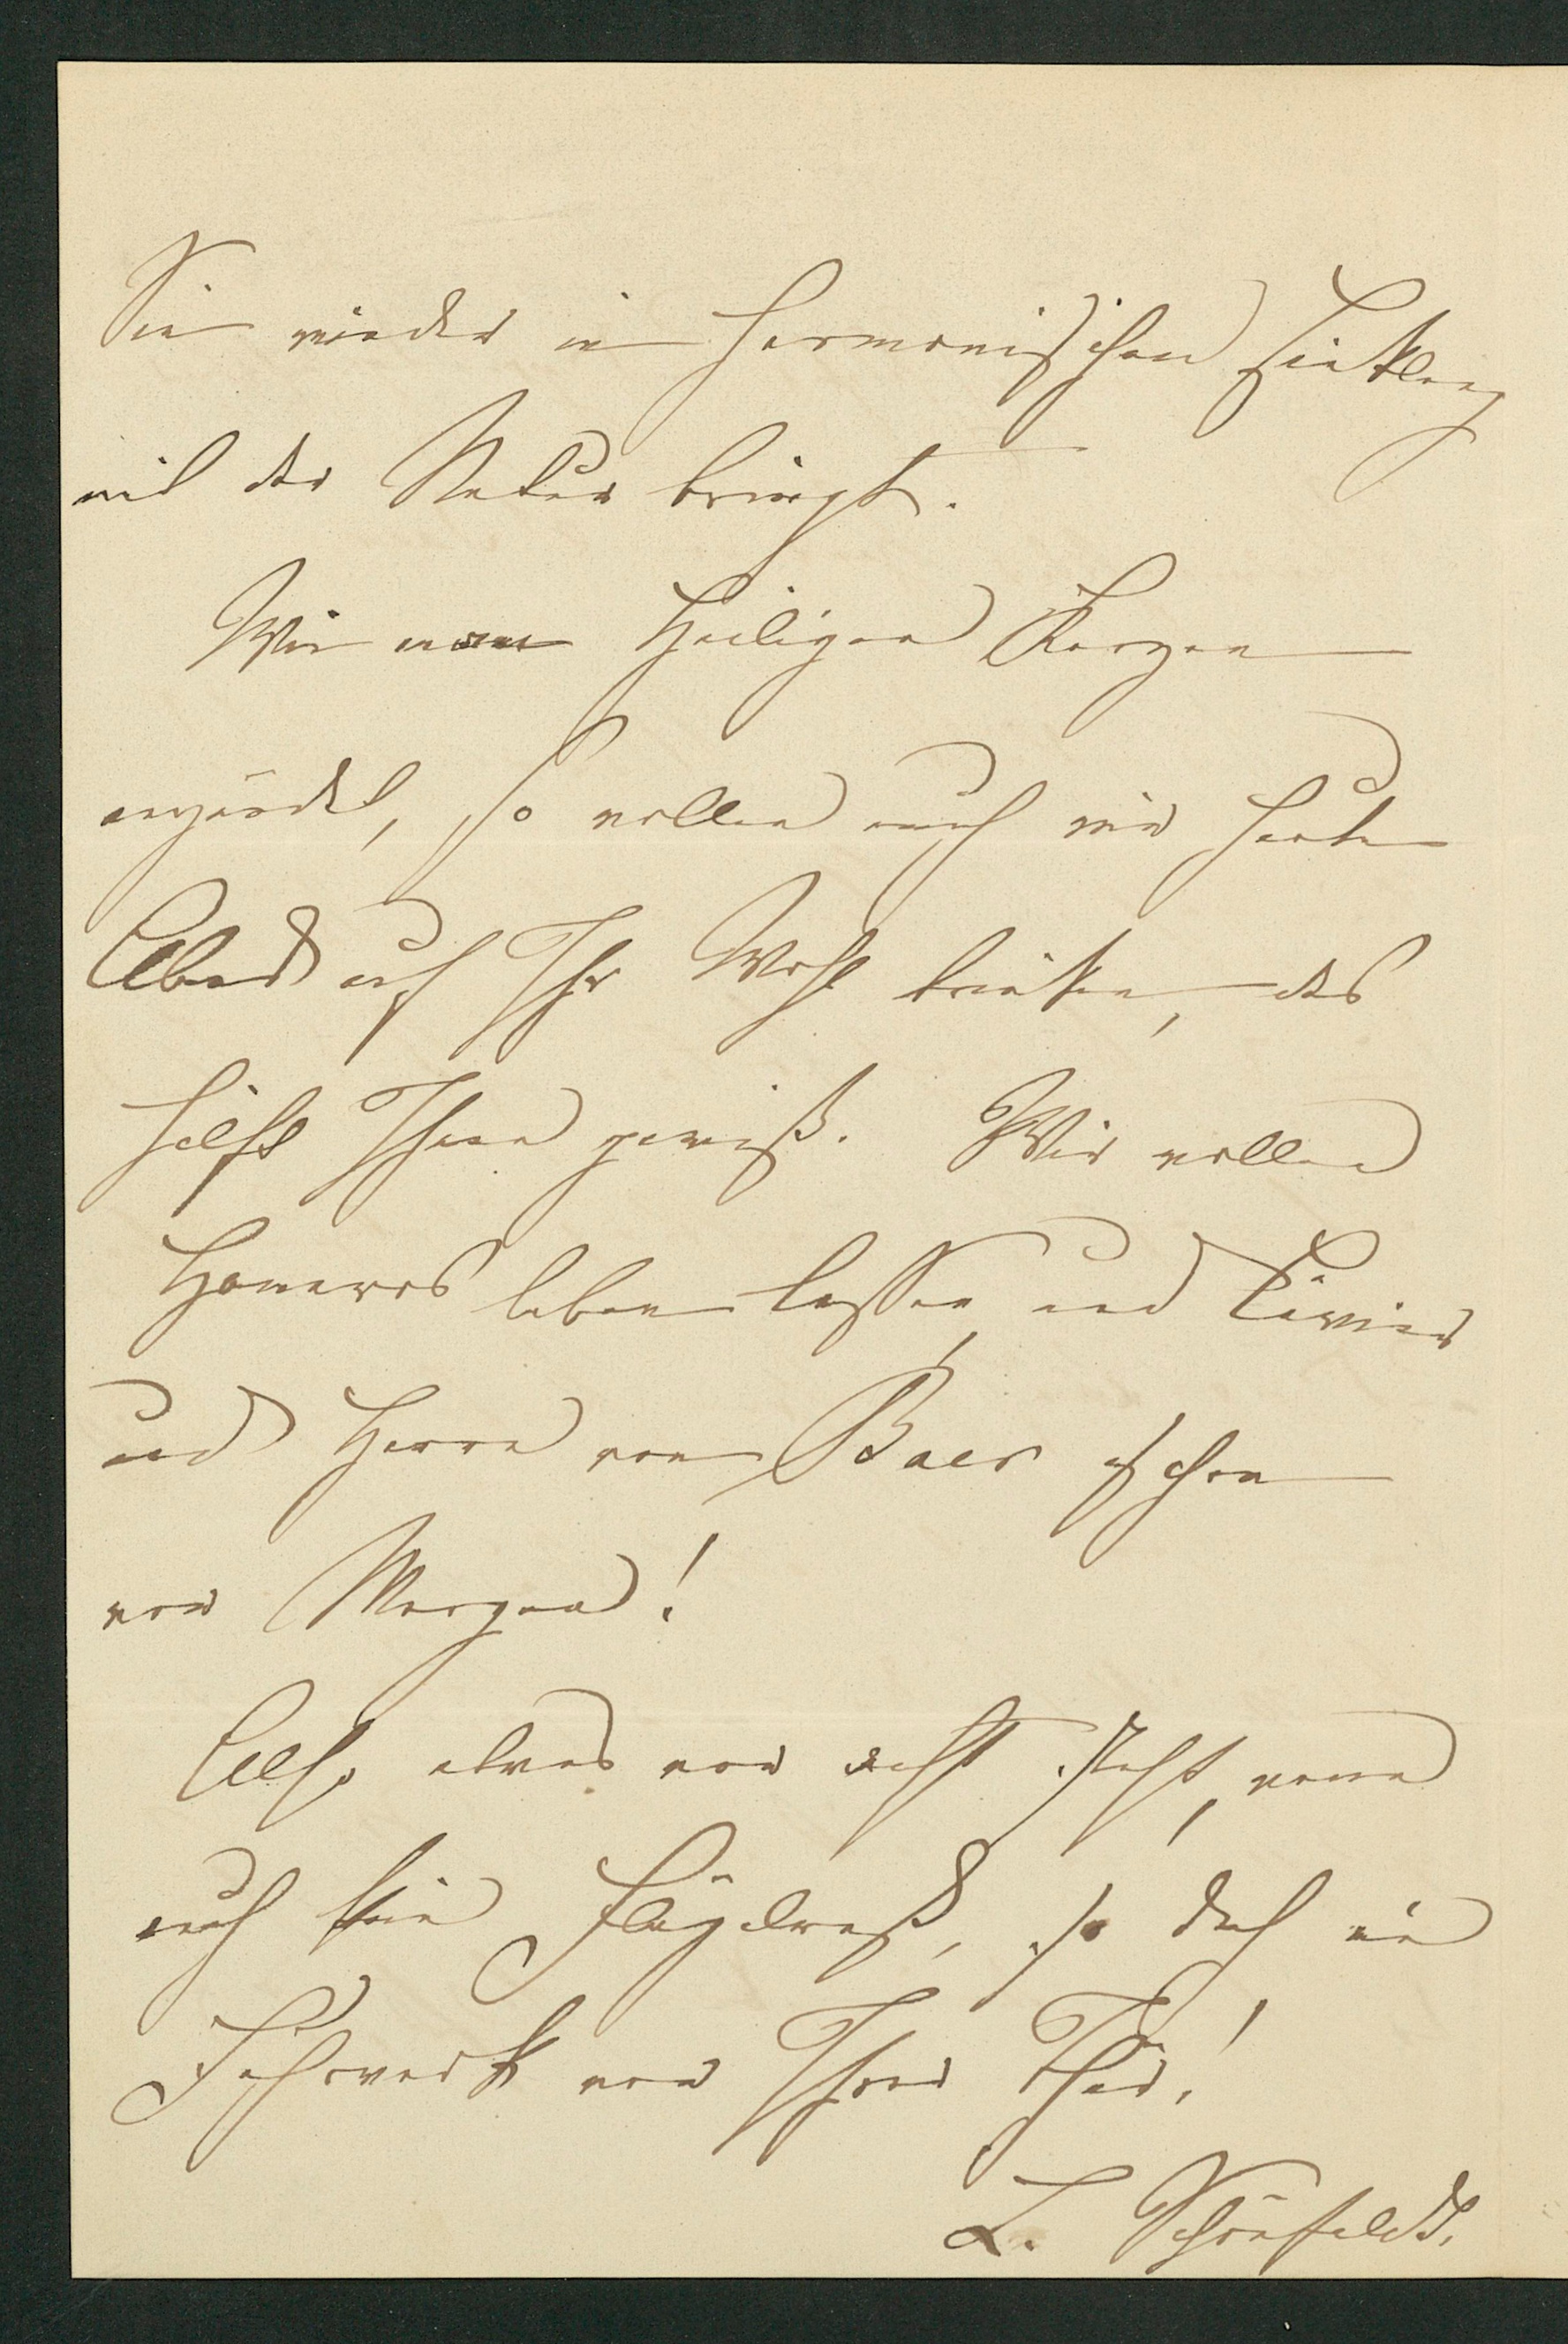 Sie wieder in harmonischen Einklang
mit der Natur bringt.
Wie man Heiligen Kerzen
anzündet, so wollen auch wir heute
Abend auf Ihr Wohl trinken, das
hilft Ihnen gewiß. Wir wollen
Homeros leben lassen, und Cüvier
und Herrn von Baer schon
von Morgen!
Also etwas vor acht steht, wenn
auch kein Flügelroß, so doch ein
Fuhrwerk vor Ihrer Thür!
L. Schönfeldt.